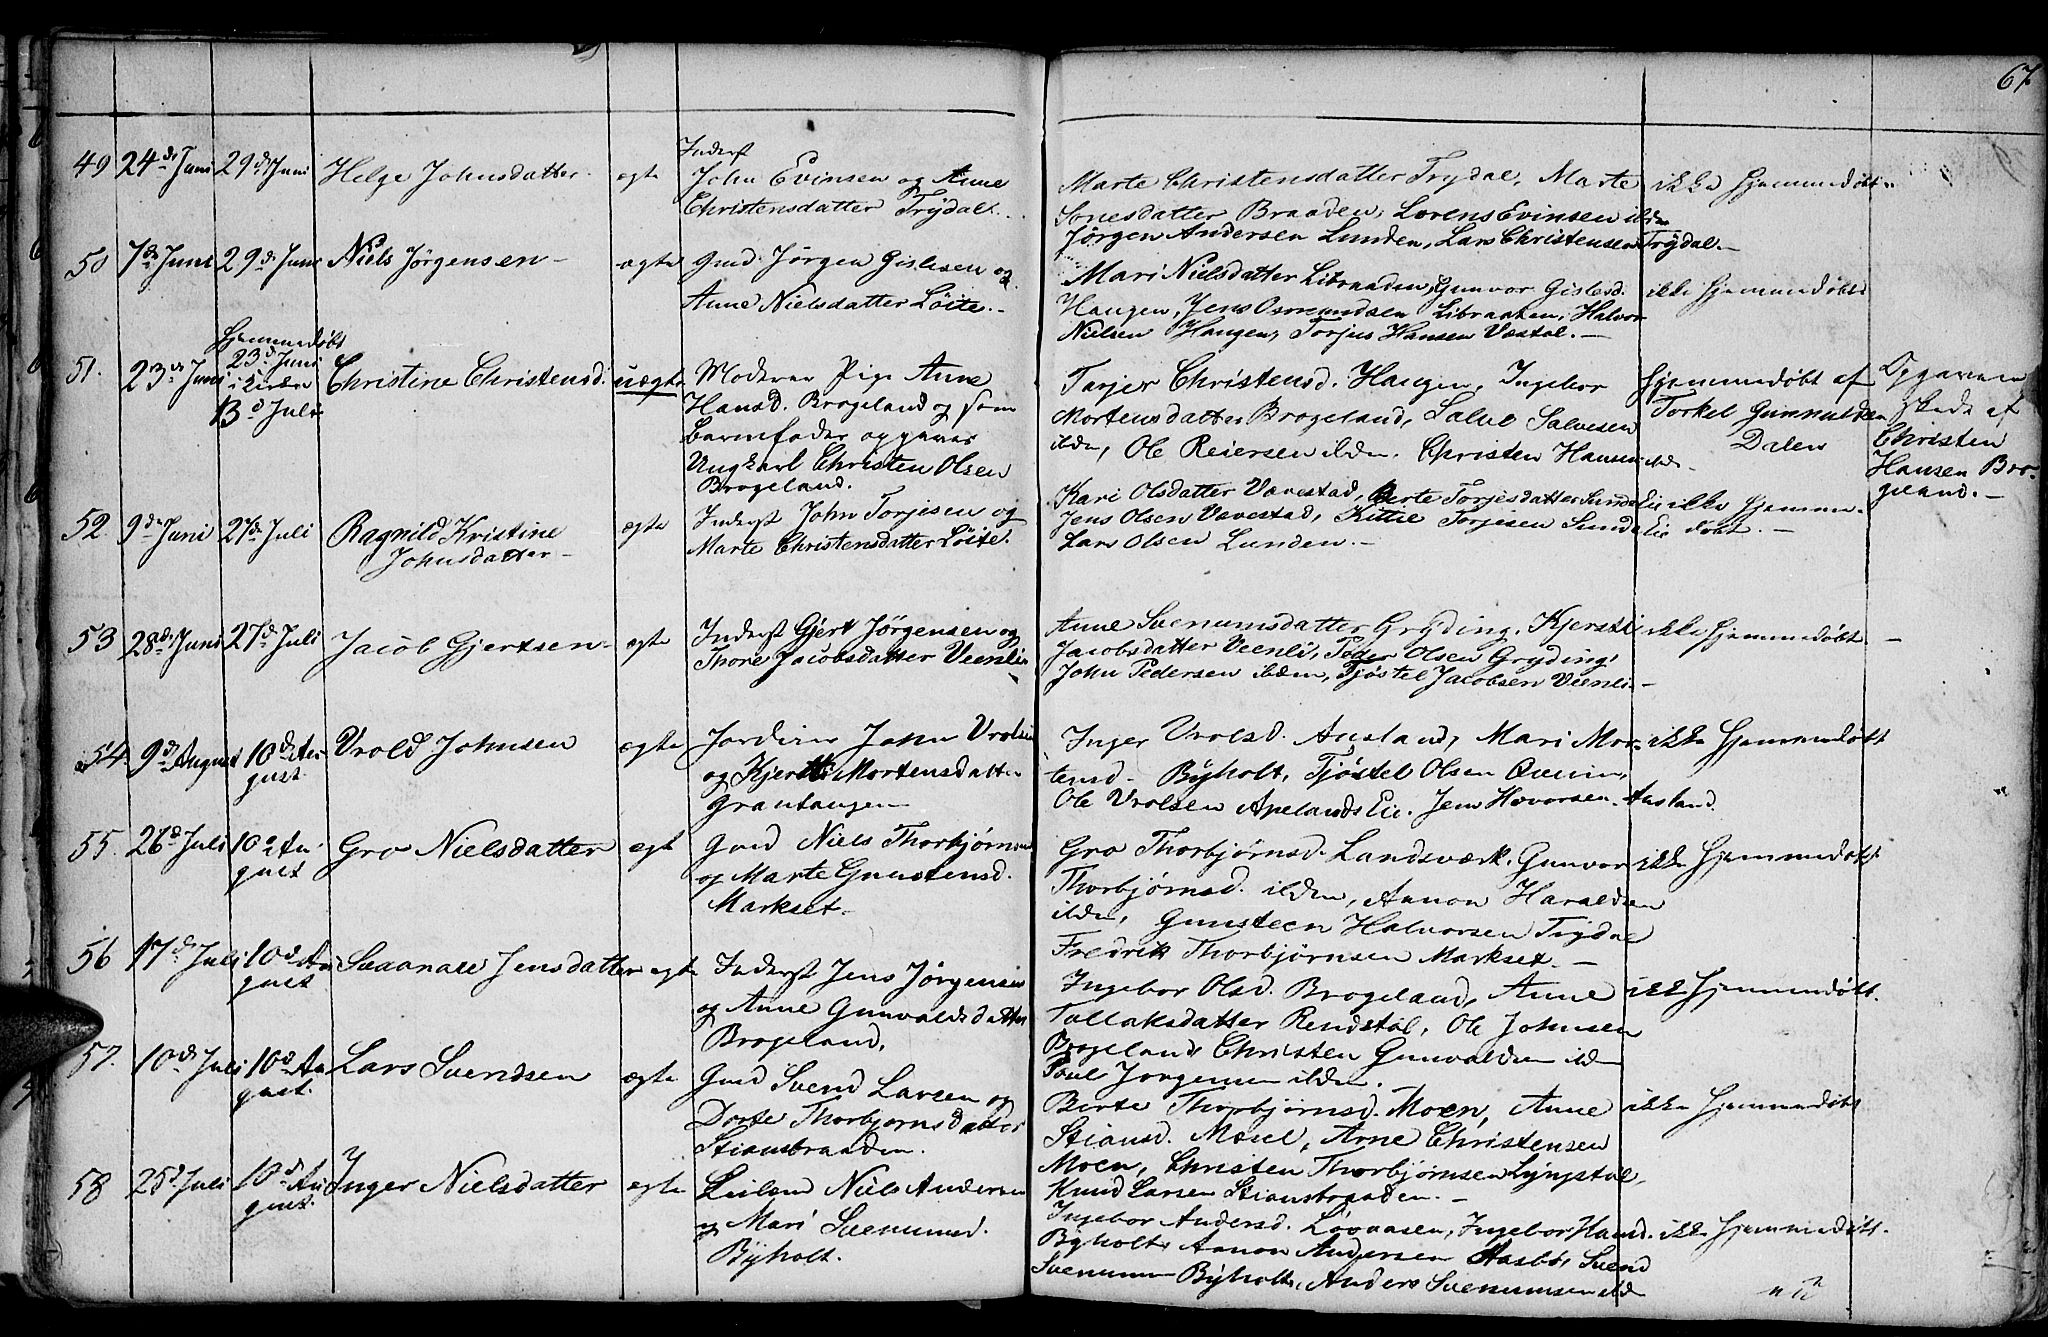 67
49 24de Juni 29de Juni Helge Johnsdatter. ægte Inderst
John Evinsen og Anne
Christensdatter Trydal.
Marte Christensdatter Trydal, Marte ikke hjemmedøbt
Jonesdatter Braaden, Lorens Evinsen ibdm
Jørgen Andersen Lunden, Lars Christensen Trydal.
50 7de Juni 29de Juni Niels Jørgensen ægte Gmd. Jørgen Gislesen og
Anne Nielsdatter Løite.
Mari Nielsdatter Libraaden, Gunvor Gislesd. ikke hjemmedøbt
Haugen, Jens Osmundsen Libraaten, Halvor
Nielsen Haugen, Torjus Hansen Væstøl.
51. 23de Juni Hjemmedøbt
23d Juni
i Kirken
13d Juli
Christine Christensd. uægte Moderen Pige Anne
Hansd. Brogeland og som
Barnefader opgives
Ungkarl Christen Olsen
Brogeland.
Tarjer Christensd. Haugen, Ingebor
Mortensdatter Brogeland, Salve Salvesen
ibdm, Ole Reiersen ibdm. Christen Hansen ibdm.
Hjemmedøbt af
Torkel Gunnuldsen
Dalen
Opgaven
skede af
Christen
Hansen Bro-
geland.
52. 9de Juni 27de Juli Ragnild Kristine
Johnsdatter
ægte Inderst John Torjesen og
Marte Christensdatter Løite.
Kari Olsdatter Vævestad, Berte Torjesdatter Sundslie ikke hjemme-
Jens Olsen Vævestad, Kittil Torjesen Sundslie døbt.
Lars Olsen Lunden.
53 28de Juni 27de Juli Jacob Gjertsen ægte Inderst Gjert Jørgensen og
Thore Jacobsdatter Veenli
Anne Svenumsdatter Gryding, Kjersti ikke hjemmedøbt
Jacobsdatter Veenli, Peder Olsen Gryding,
John Pedersen ibdm, Tjøstel Jacobsen Veenli
54. 9de August 10de Au-
gust.
Vrold Johnsen ægte Jordeier John Vrolsen
og Kjersti Mortensdatter
Grantangen
Inger Vrolsd. Ausland, Mari Mor- ikke hjemmedøbt
tensd. Byholt, Tjøstel Olsen
Ole Vrolsen Apelands Eie. Jens Hovorsen Ausland.
55. 26d Juli 10d Au-
gust
Gro Nielsdatter ægte Gmd Niels Thorbjørnsen
og Marte Gunstensd.
Markset
Gro Thorbjørnsd. Landsværk, Gunvor ikke hjemmedøbt
Thorbjørnsd. ibdm, Aanon Haraldsen
ibdm, Gunsteen Halvorsen Tigdal
Fredrik Thorbjørnsen Markset.
56 17de Juli 10d Au-
gust
Susanne Jensdatter ægte Inderst Jens Jørgensen
og Anne Gunvaldsdatter
Brogeland.
Ingebor Olsd. Brogeland, Anne ikke hjemmedøbt.
Tallaksdatter Rendstøl, Ole Johnsen
Brogeland, Christen Gunvaldsen ibdm
Poul Jørgensen ibdm.
57. 10de Juli 10d Au-
gust.
Lars Svendsen ægte Gmd Svend Larsen og
Dorte Thorbjørnsdatter
Stiansbraaden.
Berte Thorbjørnsd. Moen, Anne ikke hjemmedøbt
Stiansd. Mosel, Arne Christensen
Moen, Christen Thorbjørnsen Lyngstøl,
Knud Larsen Stiansbraaden.
58 25d Juli 10d Au-
gust.
Inger Nielsdatter ægte Leilend Niels Andersen
og Mari Svenumsd.
Byholt.
Ingebor Andersd. Løvaasen, Ingebor Hansd. ikke hjemmedøbt.
Byholt, Aanon Andersen Aasbø, Svend
Svenumsen Byholt, Anders Svenumsen ibdm